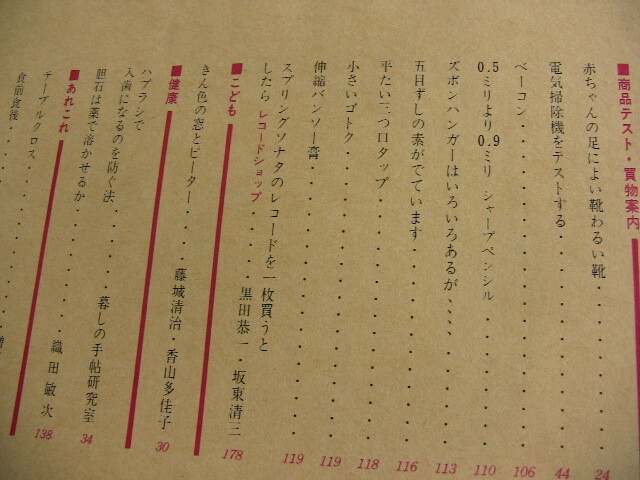 ■商品テスト・買物案内
赤ちゃんの足によい靴わるい靴 24
電気掃除機をテストする 44
ベーコン 106
0.5ミリより0.9ミリ シャープペンシル 110
ズボンハンガーはいろいろあるが、、、、 113
五目ずしの素がでています 116
平たい三つ口タップ 118
小さいゴトク 119
伸縮バンソー膏 119
スプリングソナタのレコードを一枚買うと
したら レコードショップ 黒田恭一・坂東清三 178
■こども
きん色の窓とピーター 藤城清治・香山多佳子 30
■健康
ハブラシで
入歯になるのを防ぐ法 暮しの手帖研究室 34
胆石は薬で溶かせるか 織田敏次 138
■あれこれ
テーブルクロス
食前食後